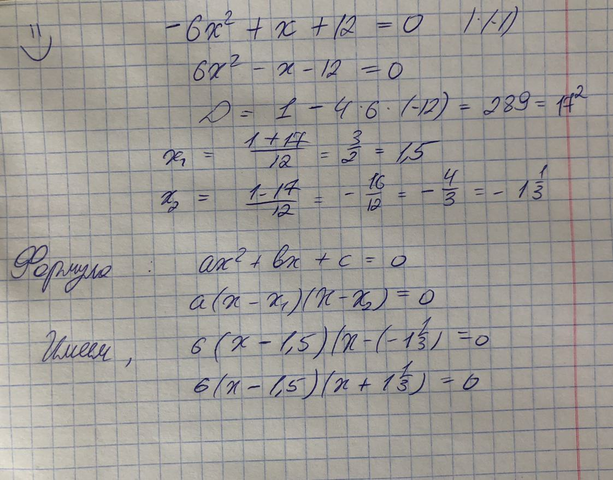 -6x² + x + 12 = 0 |·(-1)
6x² - x - 12 = 0
D = 1 - 4·6·(-12) = 289 = 17²
x₁ = (1+17)/12 = 3/2 = 1,5
x₂ = (1-17)/12 = -16/12 = -4/3 = -1 1/3
Формула : ax² + bx + c = 0
a(x - x₁)(x - x₂) = 0
Имеем, 6(x - 1,5)(x - (-1 1/3) = 0
6(x - 1,5)(x + 1 1/3) = 0